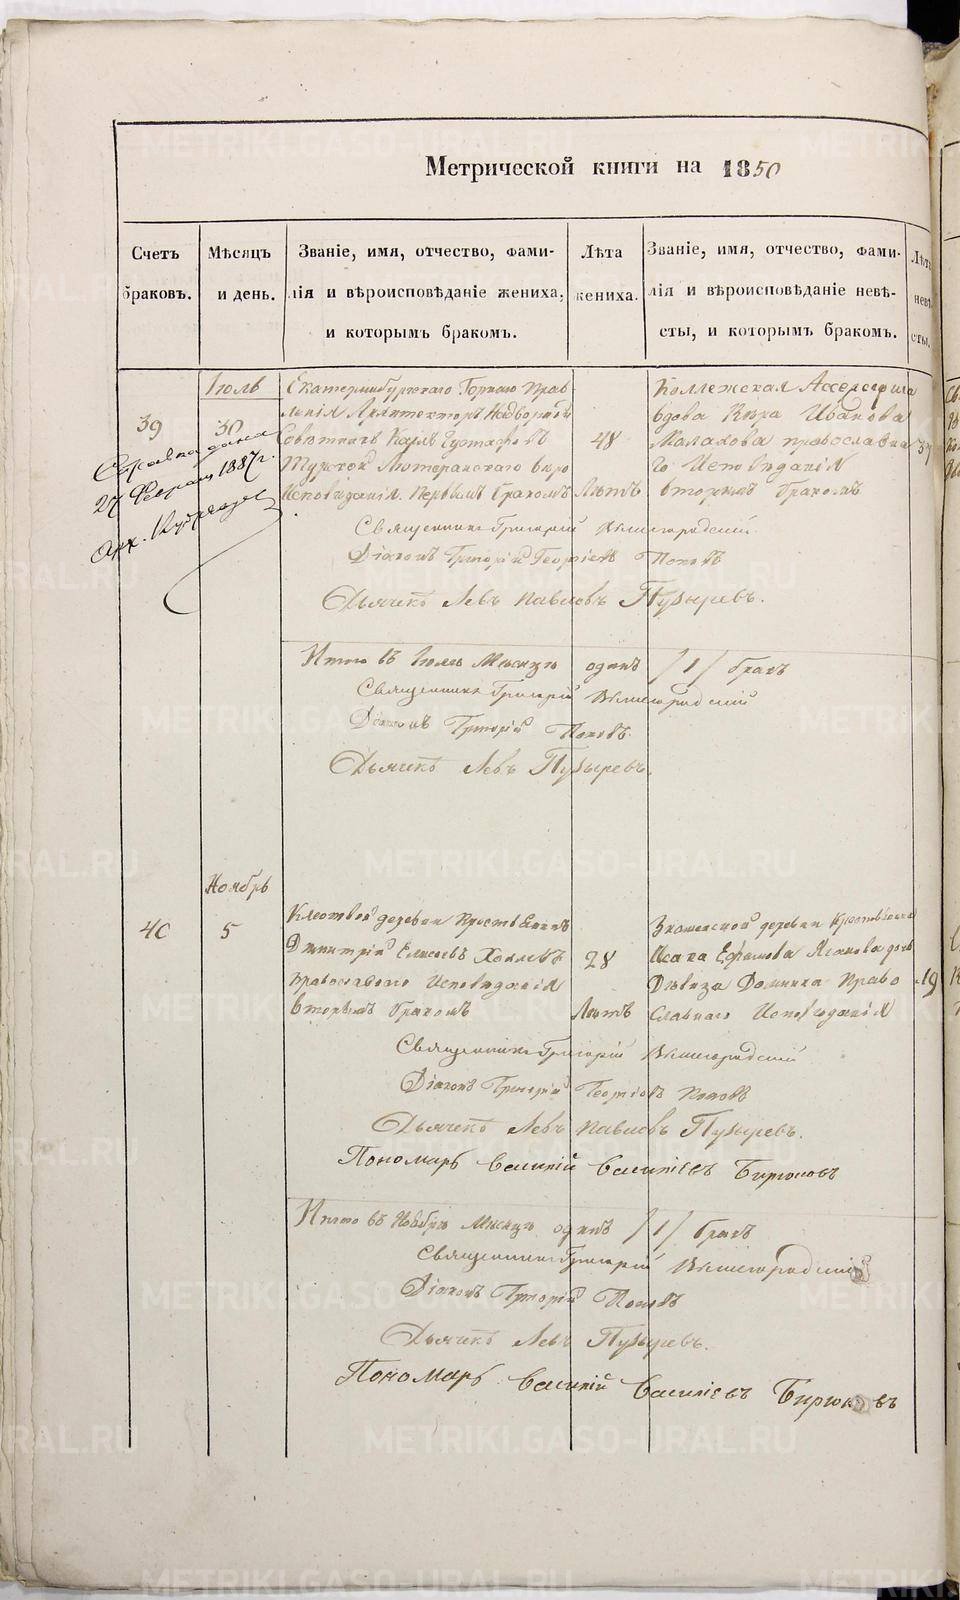 Метрической книги на 1850
Счетъ браковъ.
Мѣсяцъ и день.
Званіе, имя, отчество, фами-
лія и вѣроисповѣданіе жениха,
и которымъ бракомъ.
Лѣта жениха.
Званіе, имя, отчество, фами-
лія и вѣроисповѣданіе невѣ-
сты, и которымъ бракомъ.
Лѣта невѣ-сты.
Іюль
39
30
Екатеринбургскаго Горнаго Прав-
ленія Архитекторъ Надворный
Совѣтникъ Карлъ Густавовъ
Турскій Лютеранскаго вѣро
исповѣданія. Первымъ бракомъ
48
Лѣтъ
Коллежская Ассесорша
вдова Вѣра Иванова
Малахова православна
го исповѣданія
вторымъ бракомъ
37
Справка дана
27 Февраля 1887 г.
Священникъ Григорій Вышегородскій
Діаконъ Григорій Георгіевъ Поповъ
Дьячекъ Левъ Павловъ Пузыревъ.
Итого въ Іюлѣ Мѣсяцѣ одинъ /1/ бракъ
Священникъ Григорій Вышегородскій
Діаконъ Григорій Поповъ.
Дьячекъ Левъ Пузыревъ.
Ноябрь
40
5
деревни Крестьянинъ
Димитрій Елисѣевъ
православнаго Исповѣданія
вторымъ бракомъ
28
Лѣтъ
деревни Крестьянина
Исака Ефимова дочь
Дѣвица Домника Право
славнаго Исповѣданія
19
Священникъ Григорій Вышегородскій
Діаконъ Григорій Георгіевъ Поповъ
Дьячекъ Левъ Павловъ Пузыревъ.
Пономарь Василій Василіевъ Бирюковъ
Итого въ Ноябрѣ Мѣсяцѣ одинъ /1/ бракъ
Священникъ Григорій Вышегородскій
Діаконъ Григорій Поповъ
Дьячекъ Левъ Пузыревъ.
Пономарь Василій Василіевъ Бирюковъ
METRIKI.GASO-URAL.RU